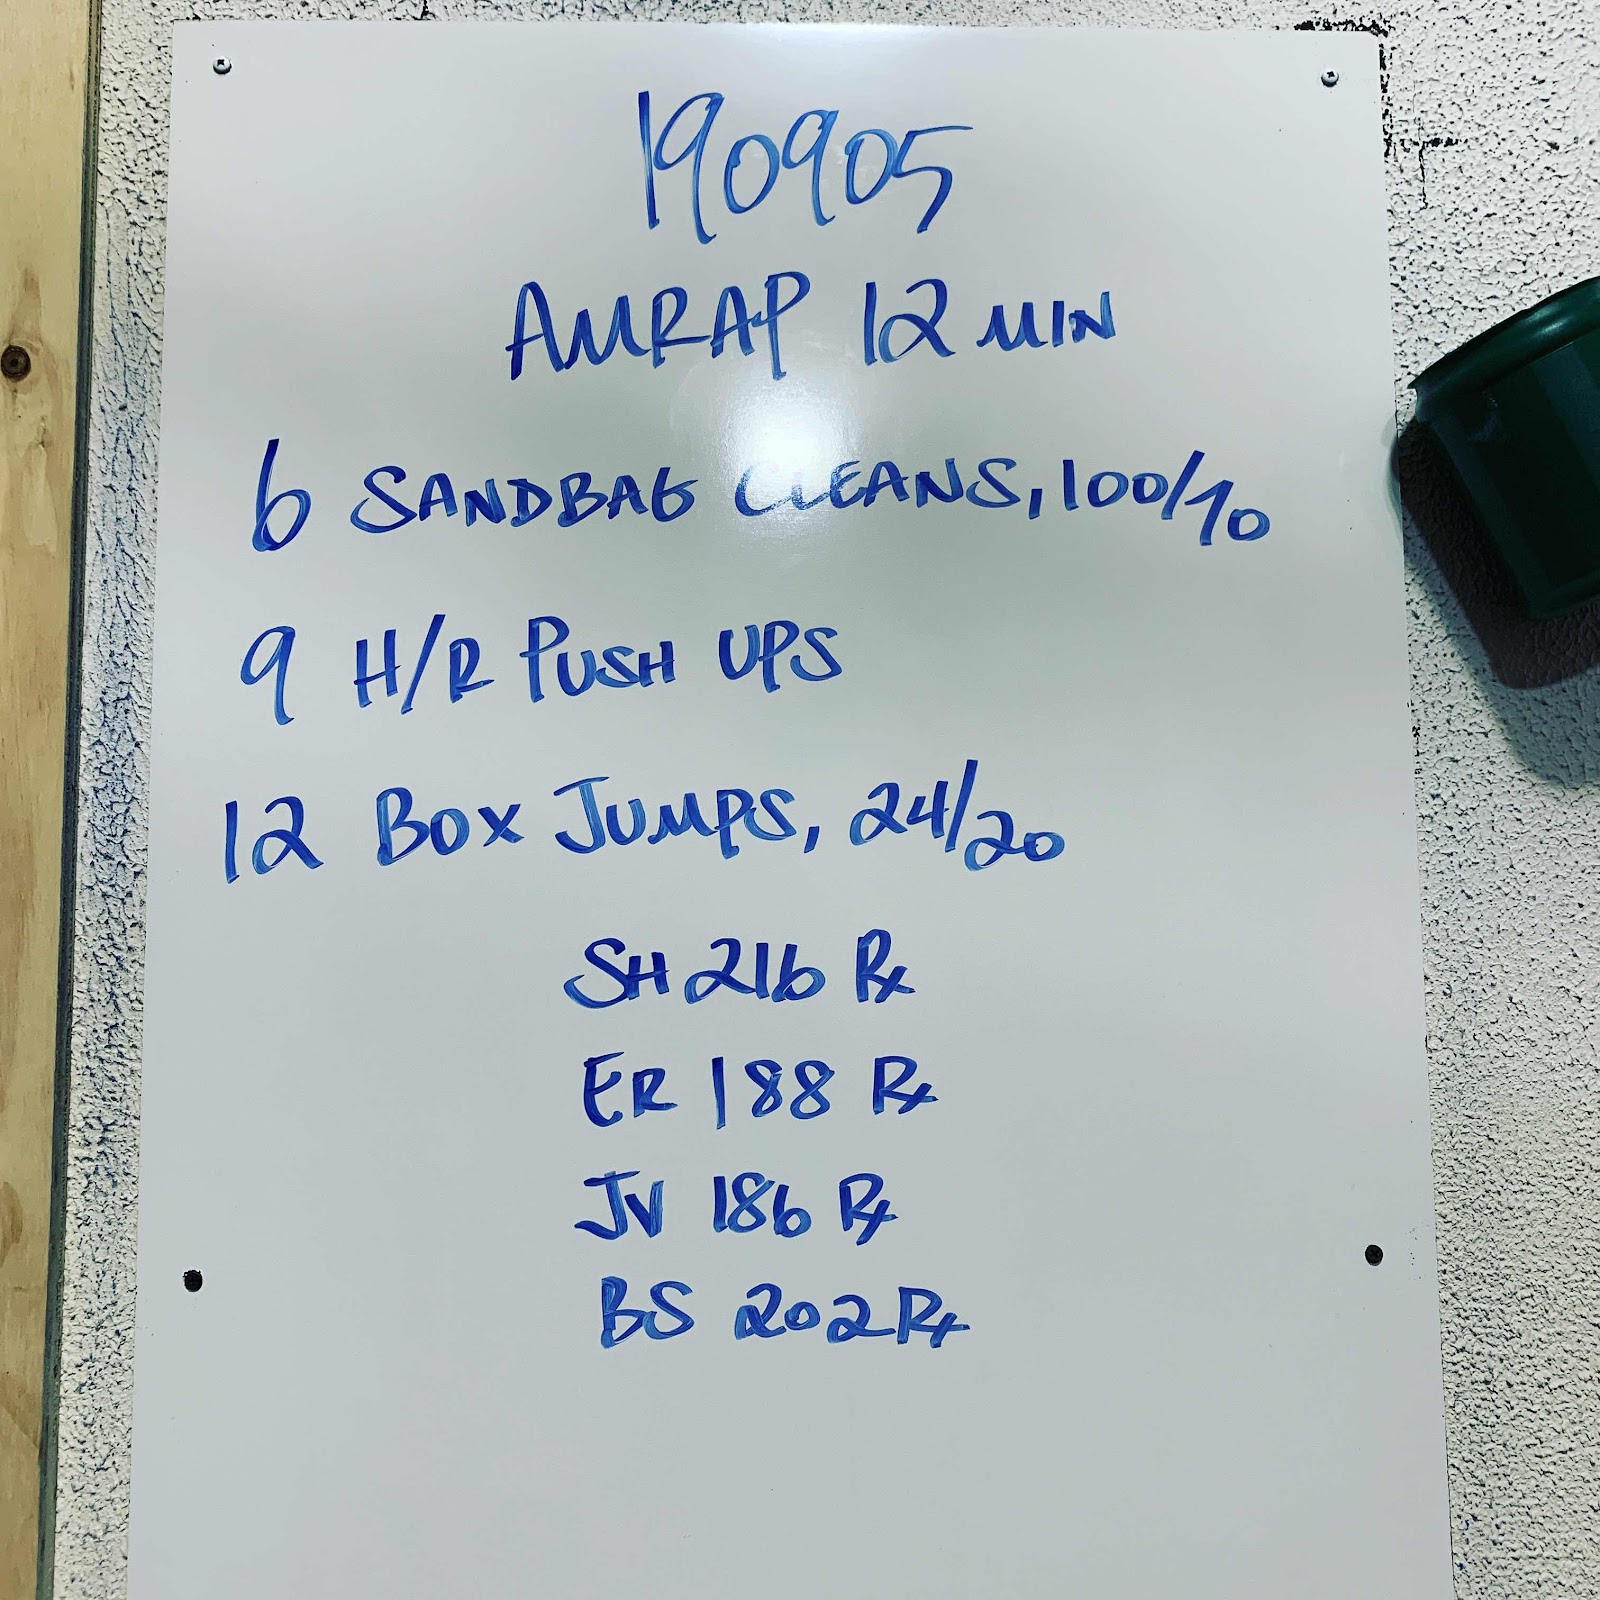 190905
AMRAP 12 MIN
6 SANDBAG CLEANS, 100/70
9 H/R PUSH UPS
12 BOX JUMPS, 24/20
SH 216 Rx
ER 188 Rx
JV 186 Rx
BS 202 Rx